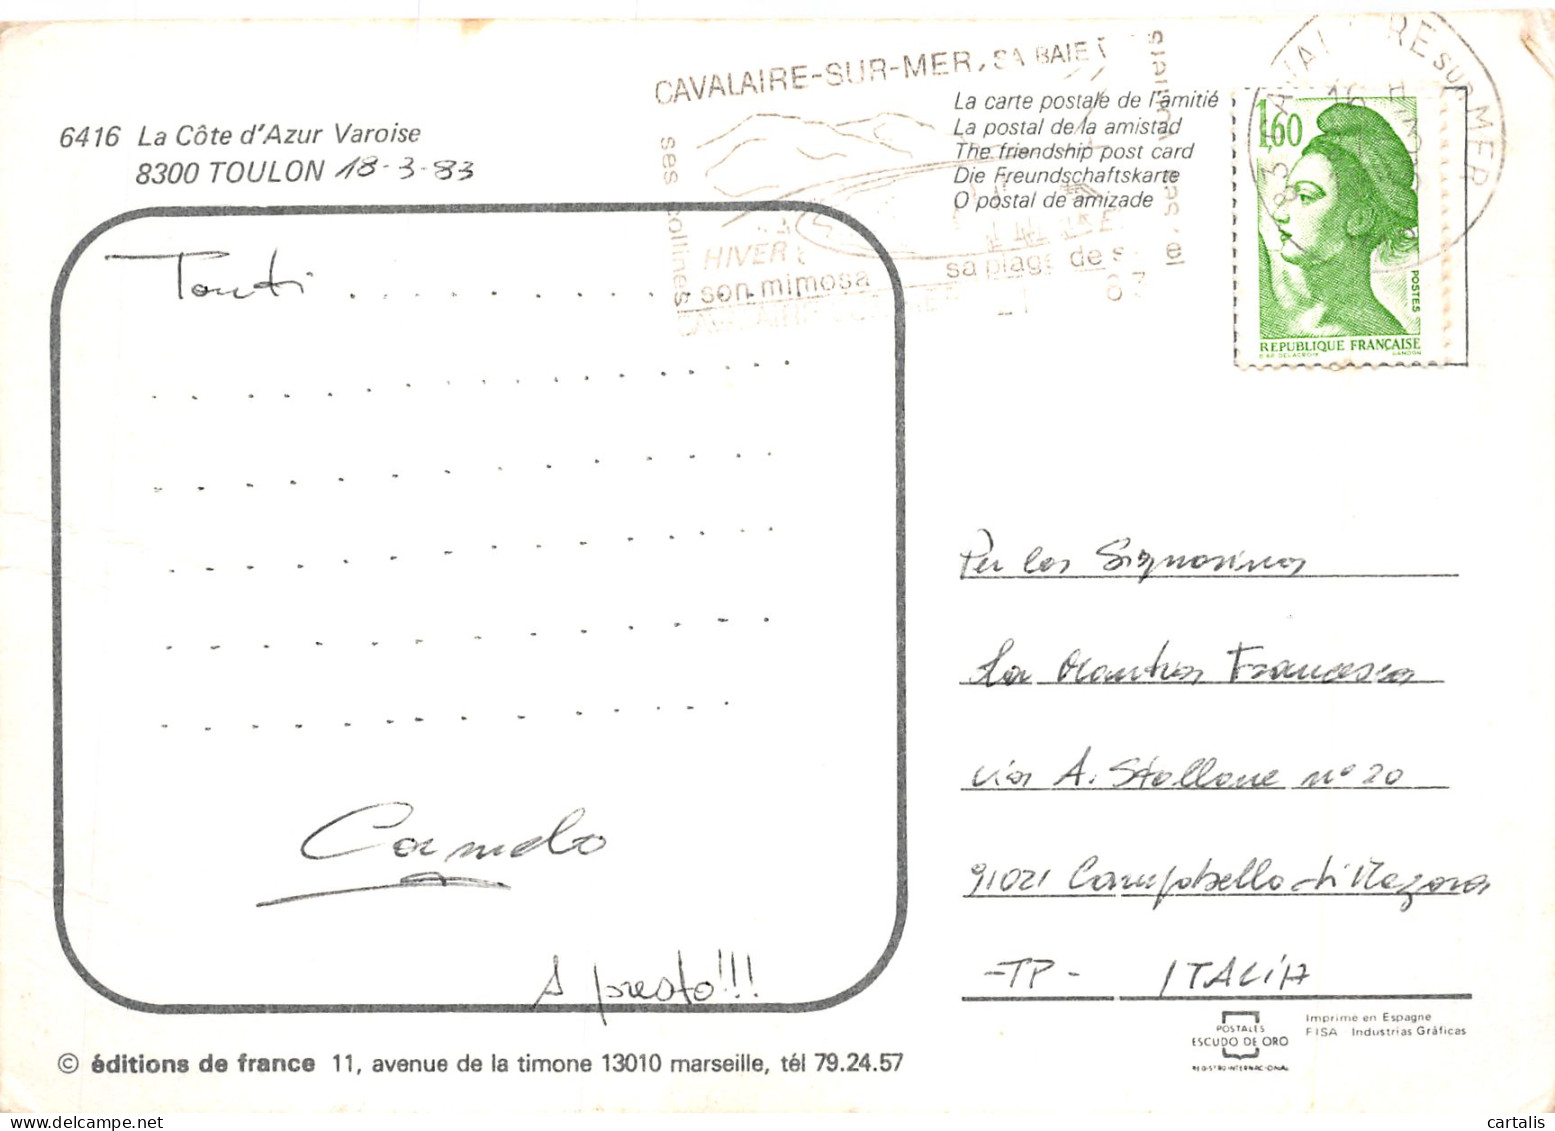 CAVALAIRE-SUR-MER, SA BAIE
ses collines
HIVER
son mimosa
sa plage de s
6416 La Côte d'Azur Varoise
8300 TOULON 18-3-83
La carte postale de l'amitié
La postal de la amistad
The friendship post card
Die Freundschaftskarte
O postal de amizade
1,60
POSTES
REPUBLIQUE FRANÇAISE
D'AP. DELACROIX GANDON
Tanti . . . . . . . . .
Carmelo
A presto!!!
Per la Signorina
La Mantia Francesca
via A. Stallone n° 20
91021 Campobello di Mazara
-TP- ITALIA
© éditions de france 11, avenue de la timone 13010 marseille, tél 79.24.57
POSTALES
ESCUDO DE ORO
REGISTRO INTERNACIONAL
Imprimé en Espagne
FISA Industrias Gráficas
cartalis